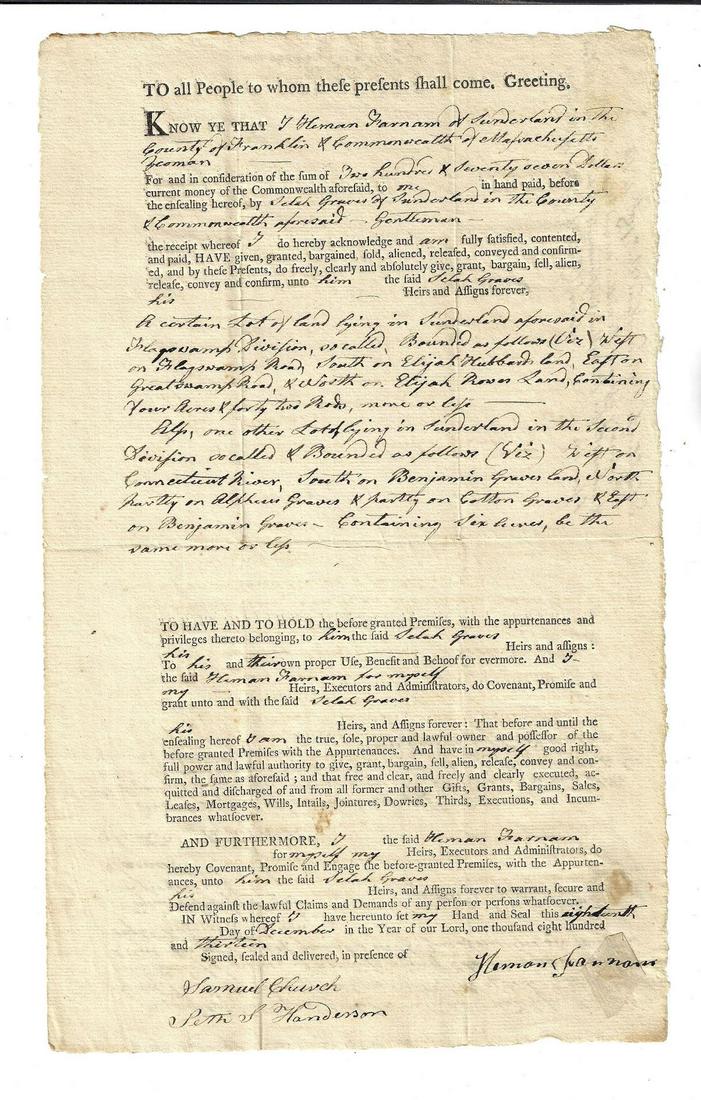 TO all People to whom theſe preſents ſhall come. Greeting.
KNOW YE THAT I Heman Farnam of Sunderland in the
County of Franklin & Commonwealth of Maſsachuſetts
Yeoman
For and in conſideration of the ſum of Two hundred & Seventy seven Dollars
current money of the Commonwealth aforeſaid, to one in hand paid, before
the enſealing hereof, by Selah Graves of Sunderland in the County
& Commonwealth aforesaid — Gentleman —
the receipt whereof I do hereby acknowledge and am fully ſatisfied, contented,
and paid, HAVE given, granted, bargained, ſold, aliened, releaſed, conveyed and confirm-
ed, and by theſe Preſents, do freely, clearly and abſolutely give, grant, bargain, ſell, alien,
releaſe, convey and confirm, unto him the ſaid Selah Graves
his Heirs and Aſſigns forever,
A certain Lot of land lying in Sunderland aforesaid in
Flagswamp Division, so called, Bounded as follows (Viz) West
on Flagswamp Road, South on Elijah Hubbard land, East on
Great Swamp Road, & North on Elijah Rowes Land, Containing
Four Acres & forty two Rods, more or leſs
Alſo, one other Lot of lying in Sunderland in the Second
Division so called & Bounded as follows (Viz) West on
Connecticut River, South on Benjamin Graves land, North
partly on Alpheus Graves & partly on Cotton Graves & East
on Benjamin Graves — Containing Six Acres, be the
same more or leſs
TO HAVE AND TO HOLD the before granted Premiſes, with the appurtenances and
privileges thereto belonging, to him the ſaid Selah Graves
his Heirs and aſſigns :
To his and their own proper Uſe, Benefit and Behoof for evermore. And I
the ſaid Heman Farnam for myself
my Heirs, Executors and Adminiſtrators, do Covenant, Promiſe and
grant unto and with the ſaid Selah Graves
his Heirs, and Aſſigns forever : That before and until the
enſealing hereof I am the true, ſole, proper and lawful owner and poſſeſſor of the
before granted Premiſes with the Appurtenances. And have in myself good right,
full power and lawful authority to give, grant, bargain, ſell, alien, releaſe, convey and con-
firm, the ſame as aforeſaid ; and that free and clear, and freely and clearly executed, ac-
quitted and diſcharged of and from all former and other Gifts, Grants, Bargains, Sales,
Leaſes, Mortgages, Wills, Intails, Jointures, Dowries, Thirds, Executions, and Incum-
brances whatſoever.
AND FURTHERMORE, I the ſaid Heman Farnam
for myself my Heirs, Executors and Adminiſtrators, do
hereby Covenant, Promiſe and Engage the before-granted Premiſes, with the Appurten-
ances, unto him the ſaid Selah Graves
his Heirs, and Aſſigns forever to warrant, ſecure and
Defend againſt the lawful Claims and Demands of any perſon or perſons whatſoever.
IN Witneſs whereof I have hereunto ſet my Hand and Seal this eighteenth
Day of December in the Year of our Lord, one thouſand eight hundred
and thirteen
Signed, ſealed and delivered, in preſence of
Heman Farnam
Samuel Church
Seth S Handerson